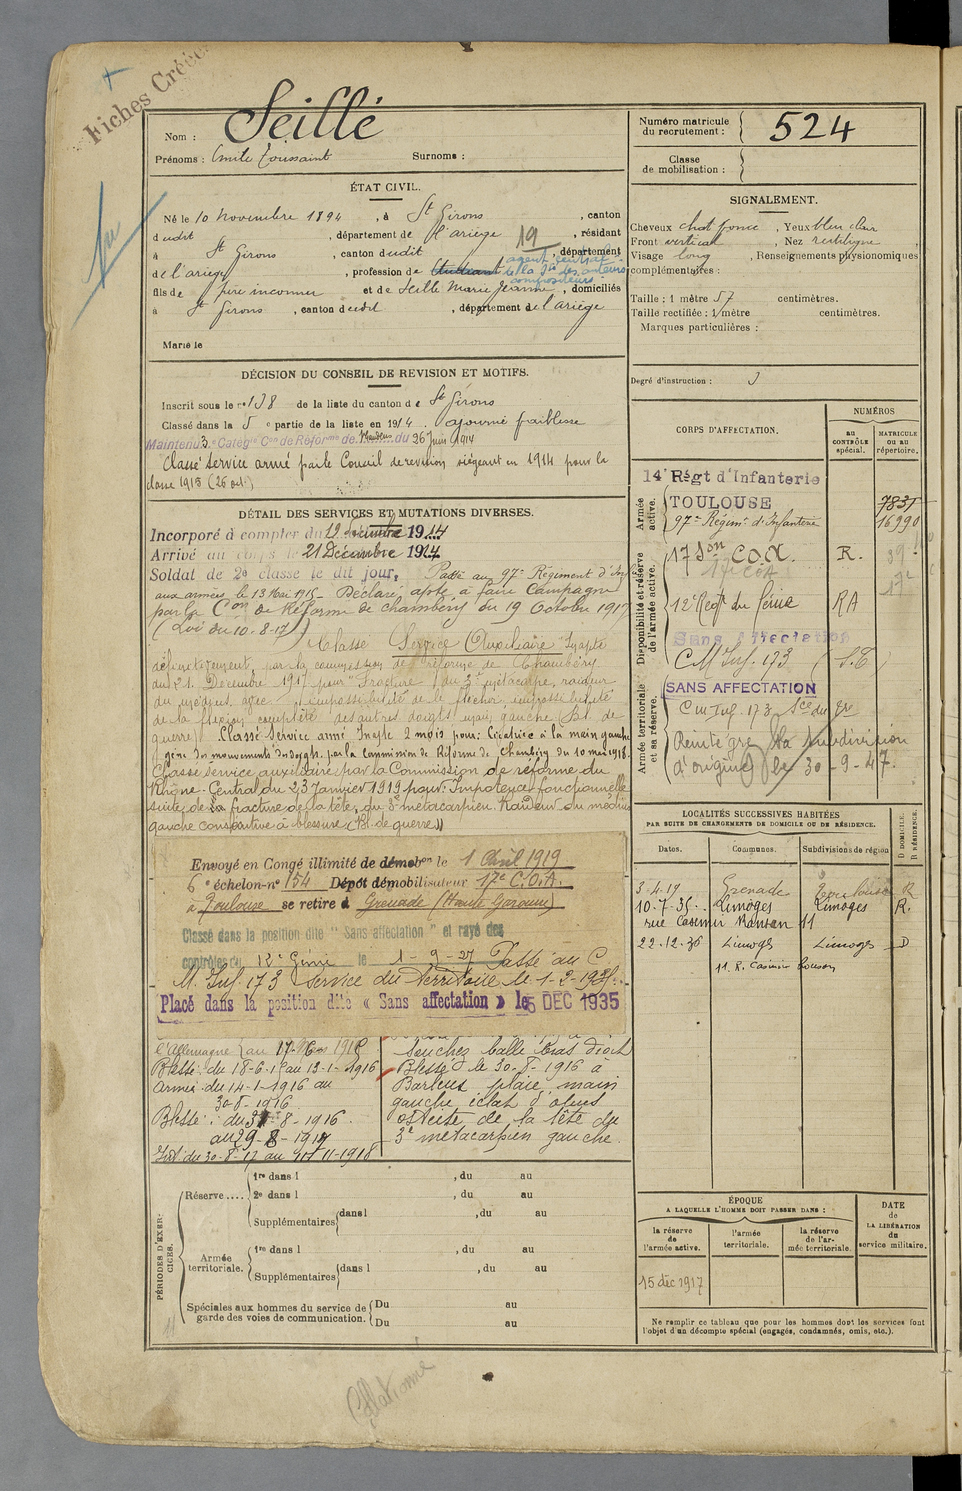 Fiches Créées
Nom : Seillé
Prénoms : Emile Toussaint Surnoms :
Numéro matricule du recrutement : 524
Classe de mobilisation :
ÉTAT CIVIL.
Né le 10 novembre 1894, à St Girons, canton
dudit, département de l'ariège 19, résidant
à St Girons, canton dudit, département
de l'ariège, profession de étudiant agent central de la Sté des auteurs compositeurs
fils de père inconnu et de Seillé Marie Jeanne, domiciliés
à St Girons, canton dudit, département de l'ariège
Marié le
SIGNALEMENT.
Cheveux chat foncé, Yeux bleu clair
Front vertical, Nez rectiligne,
Visage long, Renseignements physionomiques
complémentaires :
Taille : 1 mètre 57 centimètres.
Taille rectifiée : 1 mètre centimètres.
Marques particulières :
Degré d'instruction : 3
DÉCISION DU CONSEIL DE REVISION ET MOTIFS.
Inscrit sous le n° 138 de la liste du canton de St Girons
Classé dans la 5e partie de la liste en 1914. ajourné faiblesse
Maintenu 3e Catég. Con de Réforme de du 26 Juin 1914
Classé Service armé par le Conseil de revision siégeant en 1914 pour la
classe 1915 (26 oct.)
DÉTAIL DES SERVICES ET MUTATIONS DIVERSES.
Incorporé à compter du 19 décembre 1914
Arrivé au corps le 21 Décembre 1914
Soldat de 2e classe le dit jour, Passé au 97e Régiment d'Inf
aux armées le 13 Mai 1915 - Déclaré apte à faire Campagne
par la Con de Réforme de chambéry du 19 Octobre 1917
(Loi du 10-8-17) Classé Service Auxiliaire Inapte
définitivement, par la commission de réforme de Chambéry
du 21 Décembre 1917 pour "Fracture du 3e métacarpe, raideur
du médius avec impossibilité de le fléchir, impossibilité
de la flexion complète des autres doigts main gauche Bl. de
guerre. Classé Service armé Inapte 2 mois pour: Cicatrice à la main gauche
gêne des mouvements des doigts. par la Commission de Réforme de Chambéry du 10 mai 1918.
Classé Service auxiliaire par la Commission de réforme du
Rhône-Central du 23 Janvier 1919 pour: Impotence fonctionnelle
suite de la fracture de la tête du 3e métacarpien. Raideur du médius
gauche consécutive à blessure (Bl. de guerre)
Envoyé en Congé illimité de démobon le 1 Avril 1919
6e échelon-n° 154 Dépôt démobilisateur 17e C.O.A.
à Toulouse se retire à Grenade (Haute Garonne)
Classé dans la position dite "Sans affectation" et rayé des
contrôles du 12e Génie le 1-9-27 Passé au C.
M. Inf. 173 Service du Territoire le 1-2-1928.
Placé dans la position dite « Sans affectation » le 5 DEC 1935
l'Allemagne au
Blessé : du 18-6-1 au 13-1-1916
Armée : du 14-1-1916 au
30-8-1916
Blessé : du 31-8-1916
au 29-8-1917
Int. du 30-8-17 au 11-1918
Souchez balle bras droit
Blessé le 30-8-1916 à
Barleux plaie main
gauche éclat d'obus
ostéite de la tête du
3e métacarpien gauche.
CORPS D'AFFECTATION.
NUMÉROS
AU CONTRÔLE spécial.
MATRICULE OU AU répertoire.
Armée active.
14e Régt d'Infanterie
TOULOUSE 7837
97e Régimt d'Infanterie 16990
Disponibilité et réserve de l'armée active.
17 Son C.O.A. R.
17e COA
12e Regt du Génie RA
Sans Affectation
C M Inf. 173 (S.T)
Armée territoriale et sa réserve.
SANS AFFECTATION
C m Inf. 173 Sce du Tre
Réintégré la subdivision
d'origine le 30-9-47.
LOCALITÉS SUCCESSIVES HABITÉES
PAR SUITE DE CHANGEMENTS DE DOMICILE OU DE RÉSIDENCE.
Dates. Communes. Subdivisions de région D DOMICILE. R RÉSIDENCE.
3-4-19 Grenade Toulouse R
10-7-35 Limoges Limoges R.
rue Casimir Ranson 11
22-12-36 Limoges Limoges D
11. R. Casimir Ranson
PÉRIODES D'EXERCICES.
Réserve.... 1re dans l , du au
2e dans l , du au
Supplémentaires dans l , du au
Armée territoriale. 1re dans l , du au
Supplémentaires dans l , du au
Spéciales aux hommes du service de garde des voies de communication. Du au
Du au
ÉPOQUE
A LAQUELLE L'HOMME DOIT PASSER DANS :
la réserve de l'armée active. l'armée territoriale. la réserve de l'armée territoriale.
DATE de LA LIBÉRATION du service militaire.
15 déc 1917
Ne remplir ce tableau que pour les hommes dont les services font
l'objet d'un décompte spécial (engagés, condamnés, omis, etc.).
Collationné